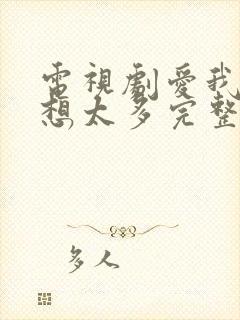 電視劇愛我
想太多完整
多人